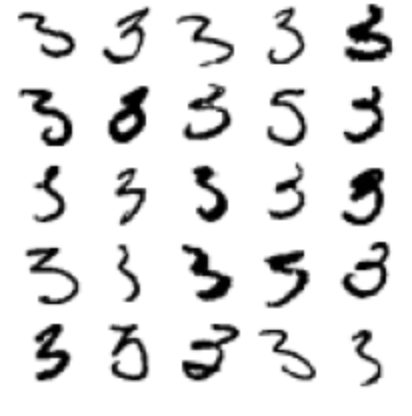 3 3 3 3 3
3 8 3 5 3
3 3 3 3 3
3 3 3 5 3
3 5 3 3 3